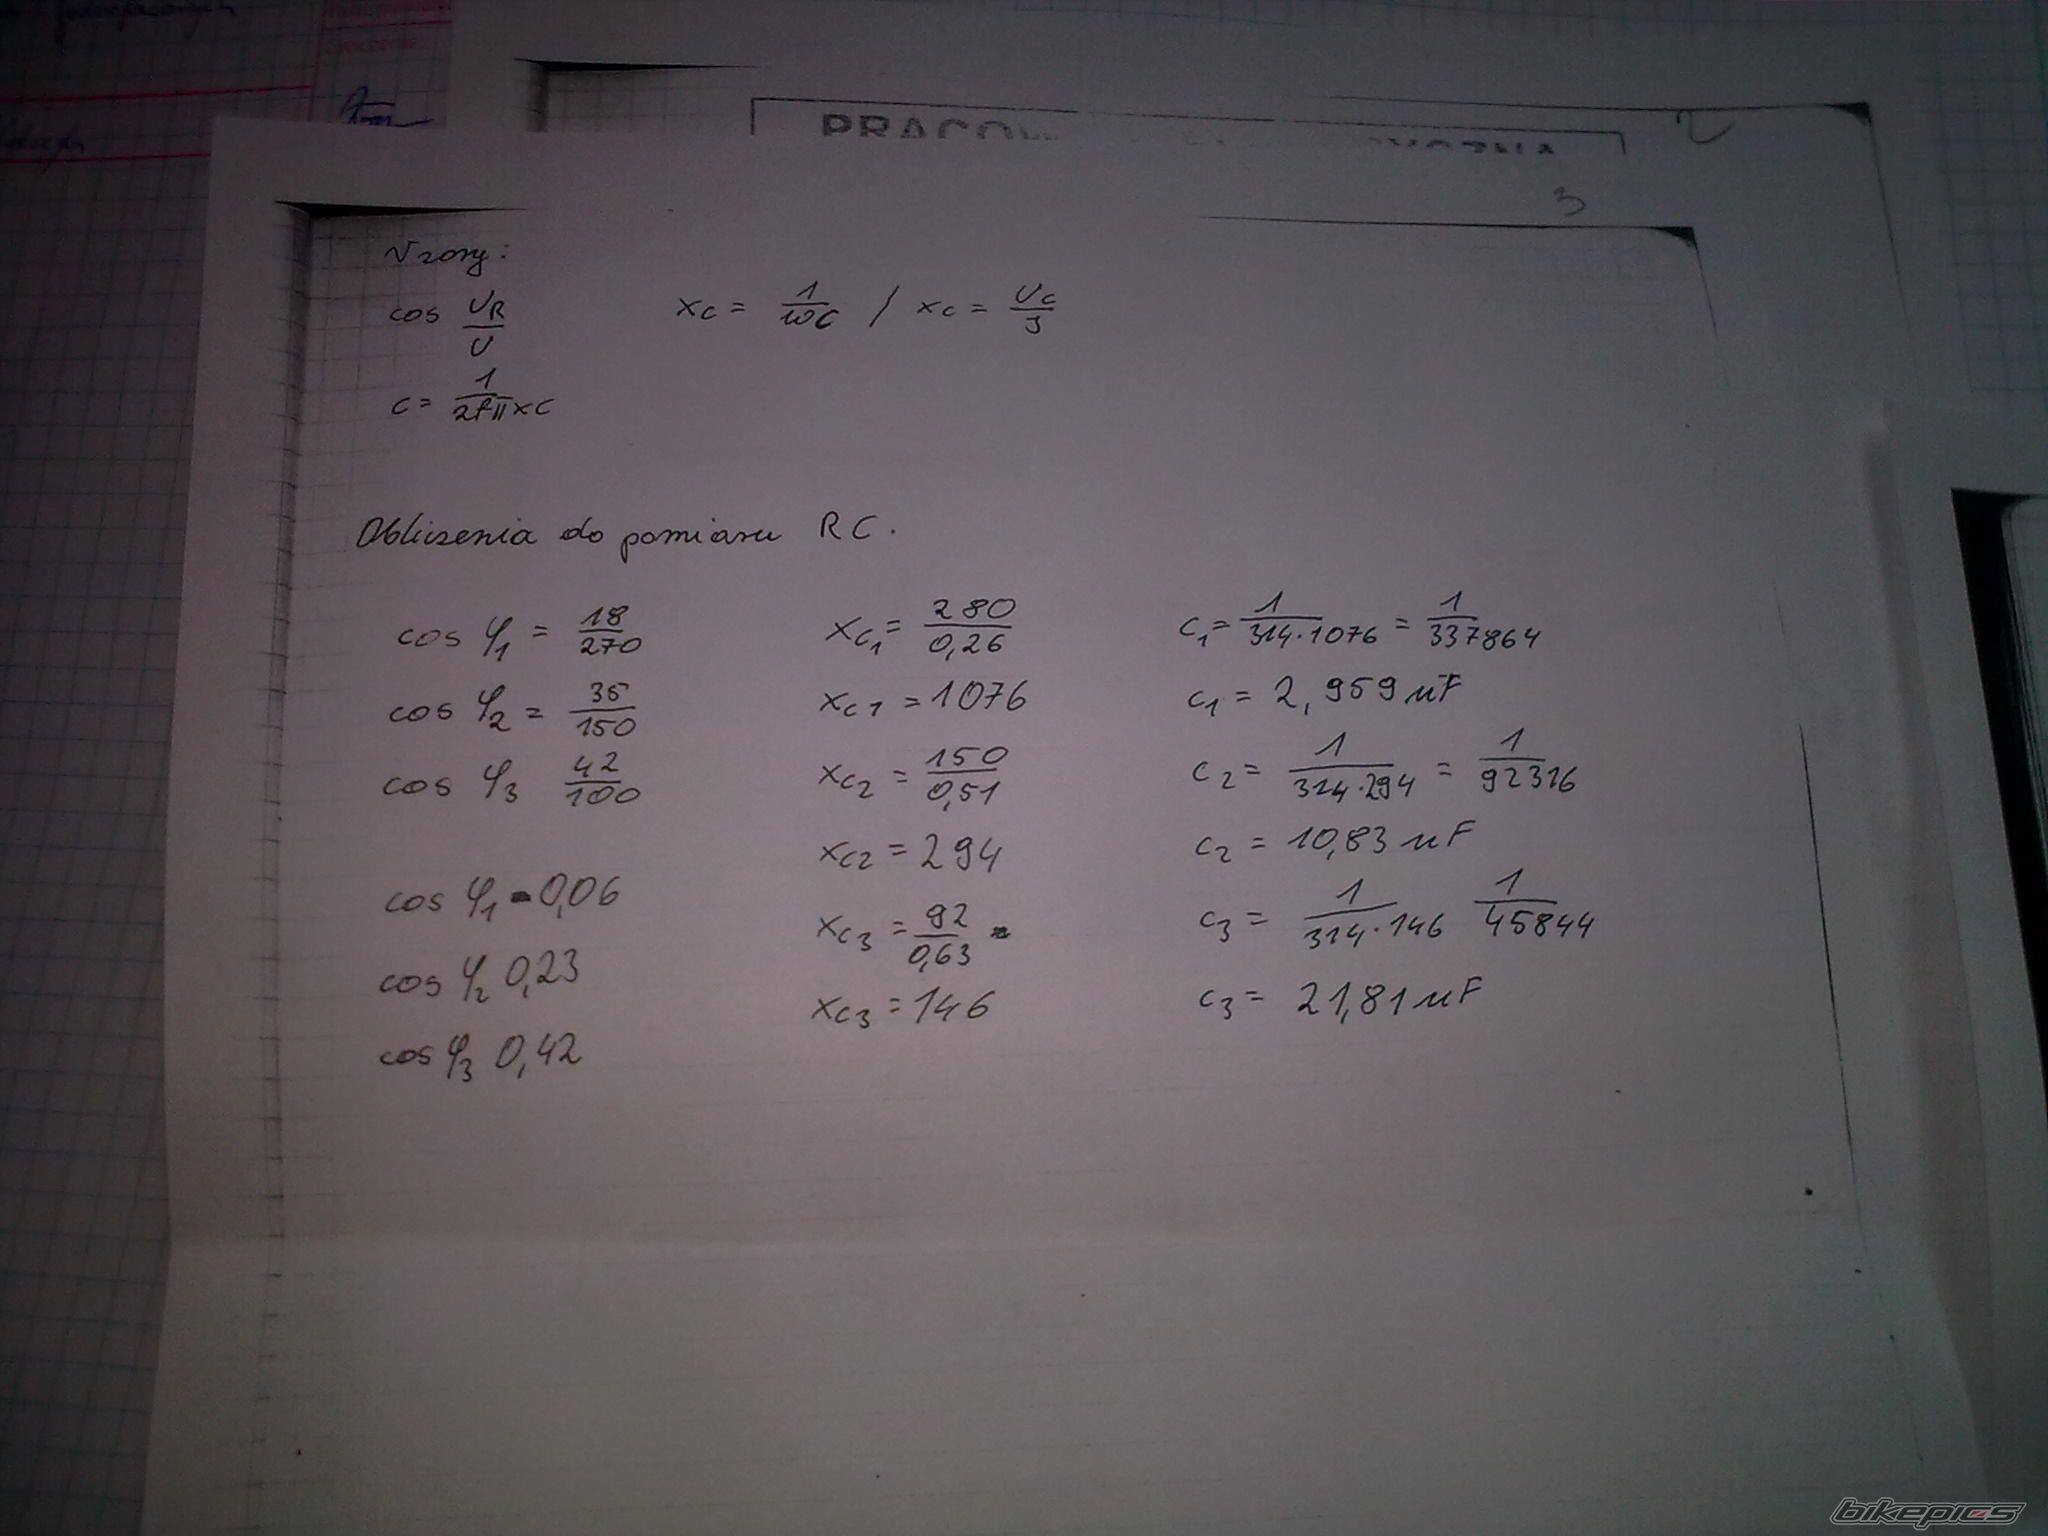 PRACOW
2
3
Wzory:
cos UR/U
xc = 1/ωC / xc = Uc/J
c = 1/2fπxC
Obliczenia do pomiaru RC.
cos φ1 = 18/270
cos φ2 = 35/150
cos φ3 42/100
cos φ1 = 0,06
cos φ2 0,23
cos φ3 0,42
xc1 = 280/0,26
xc1 = 1076
xc2 = 150/0,51
xc2 = 294
xc3 = 92/0,63 =
xc3 = 146
c1 = 1/314·1076 = 1/337864
c1 = 2,959 uF
c2 = 1/314·294 = 1/92316
c2 = 10,83 uF
c3 = 1/314·146 1/45844
c3 = 21,81 uF
bikepics